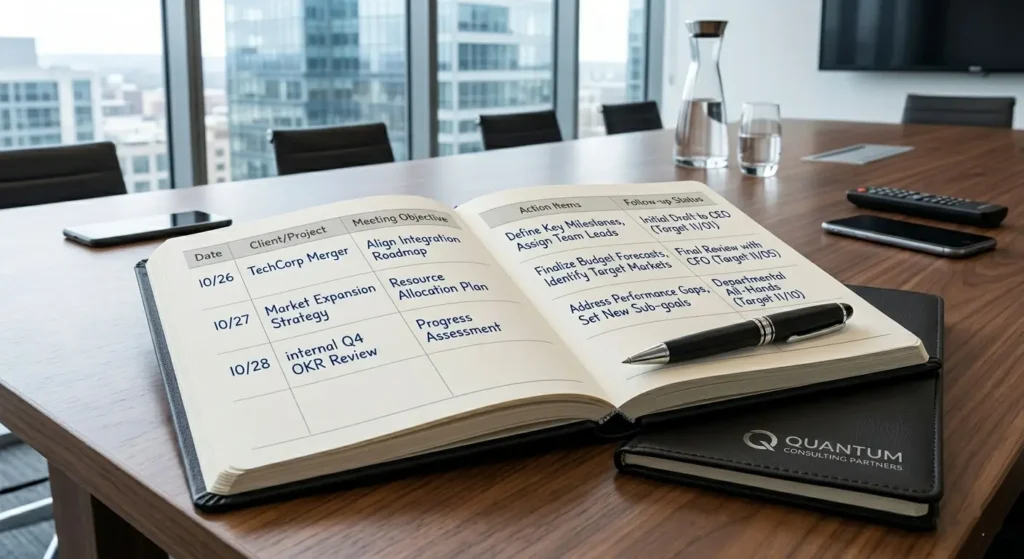 Date Client/Project Meeting Objective
10/26 TechCorp Merger Align Integration
Roadmap
10/27 Market Expansion
Strategy Resource
Allocation Plan
10/28 internal Q4
OKR Review Progress
Assessment
Action Items Follow-up Status
Define Key Milestones,
Assign Team Leads Initial Draft to CEO
(Target 11/01)
Finalize Budget Forecasts,
Identify Target Markets Final Review with
CFO (Target 11/05)
Address Performance Gaps,
Set New Sub-goals Departmental
All-Hands
(Target 11/10)
QUANTUM
CONSULTING PARTNERS